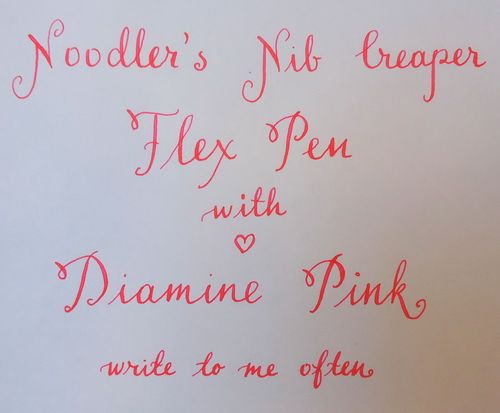 Noodler's Nib Creaper
Flex Pen
with
♡
Diamine Pink
write to me often